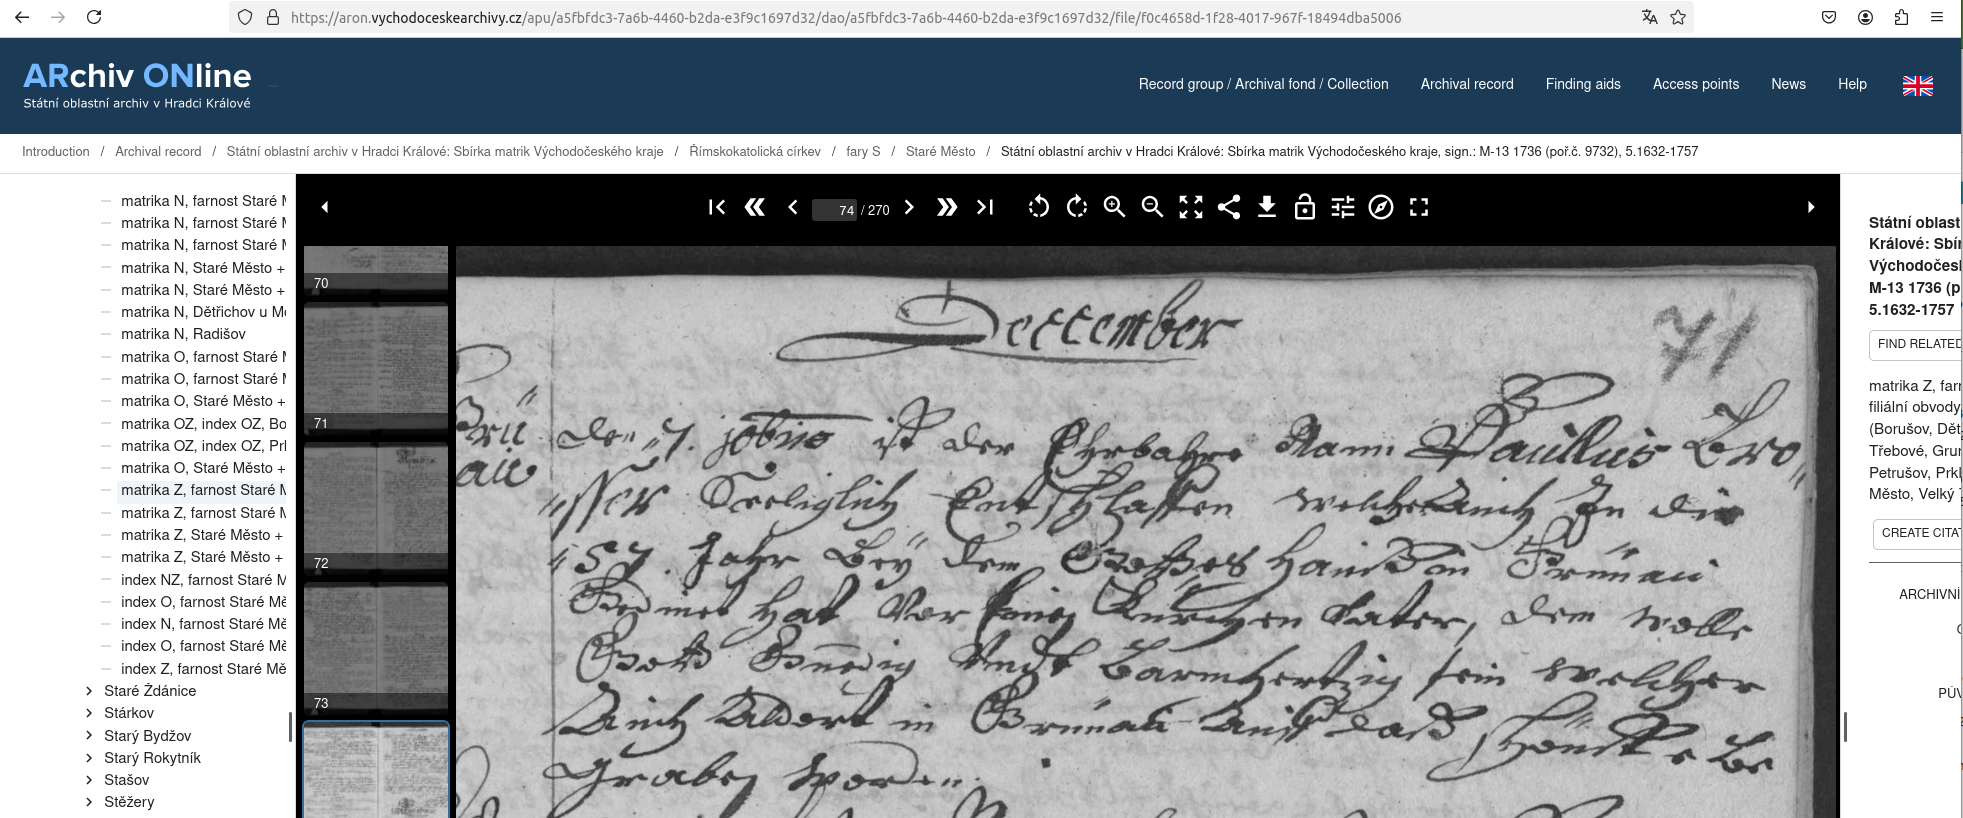 https://aron.vychodoceskearchivy.cz/apu/a5fbfdc3-7a6b-4460-b2da-e3f9c1697d32/dao/a5fbfdc3-7a6b-4460-b2da-e3f9c1697d32/file/f0c4658d-1f28-4017-967f-18494dba5006
ARchiv ONline
Státní oblastní archiv v Hradci Králové
Record group / Archival fond / Collection
Archival record
Finding aids
Access points
News
Help
Introduction / Archival record / Státní oblastní archiv v Hradci Králové: Sbírka matrik Východočeského kraje / Římskokatolická církev / fary S / Staré Město / Státní oblastní archiv v Hradci Králové: Sbírka matrik Východočeského kraje, sign.: M-13 1736 (poř.č. 9732), 5.1632-1757
matrika N, farnost Staré M
matrika N, farnost Staré M
matrika N, farnost Staré M
matrika N, Staré Město +
matrika N, Staré Město +
matrika N, Dětřichov u Mo
matrika N, Radišov
matrika O, farnost Staré M
matrika O, farnost Staré M
matrika O, Staré Město +
matrika OZ, index OZ, Bo
matrika OZ, index OZ, Prk
matrika O, Staré Město +
matrika Z, farnost Staré M
matrika Z, farnost Staré M
matrika Z, Staré Město +
matrika Z, Staré Město +
index NZ, farnost Staré M
index O, farnost Staré Mě
index N, farnost Staré Mě
index O, farnost Staré Mě
index Z, farnost Staré Mě
Staré Ždánice
Stárkov
Starý Bydžov
Starý Rokytník
Stašov
Stěžery
74 / 270
70
71
72
73
December
71
den 7. ist der Ehrbahre Mann Paullus Bro
sser Seeliglich Entschlaffen welcher Auch In die
57. Jahr Bey dem Hauß Grünau
hat Vor Kurtzen Vater, dem wolle
Gott Gnedig Undt Barmhertzig sein welcher
Auch Aldort in Grünau Auff daß Schönste Be
graben worden.
Státní oblast
Králové: Sbír
Východočesk
M-13 1736 (p
5.1632-1757
FIND RELATED
matrika Z, farn
filiální obvody
(Borušov, Dět
Třebové, Grun
Petrušov, Prkl
Město, Velký
CREATE CITAT
ARCHIVNÍ
PŮV